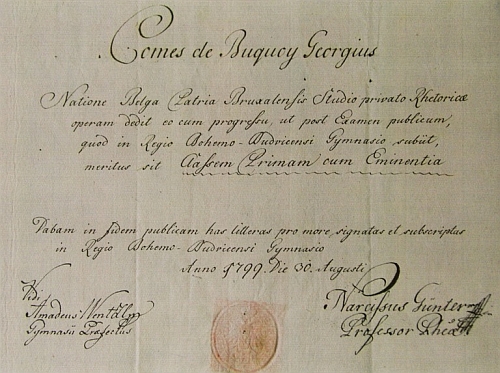 Comes de Buquoy Georgius
Natione Belga Patria Bruxalensis Studio privato Rhetoricæ
operam dedit eo cum progressu, ut post Examen publicum,
quod in Regio Bohemo-Budvicensi Gymnasio subiit,
meritus sit Classem Primam cum Eminentia
Dabam in fidem publicam has litteras pro more, signatas et subscriptas
in Regio Bohemo-Budvicensi Gymnasio
Anno 1799. Die 30. Augusti
Vidi
Amadeus
Gymnasii Præfectus
Narcissus Günter
Professor